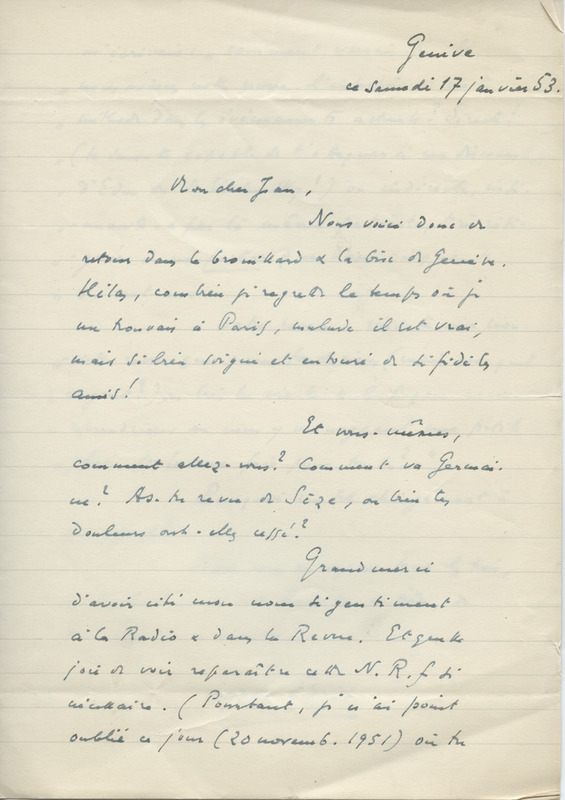 Genève
ce samedi 17 janvier 53.
Mon cher Jean,
Nous voici donc de
retour dans le brouillard & la bise de Genève.
Hélas, combien je regrette le temps où je
me trouvais à Paris, malade il est vrai,
mais si bien soigné et entouré de si fidèles
amis!
Et vous-mêmes,
comment allez-vous? Comment va Germai-
ne? As-tu revu de Sèze, ou bien tes
douleurs ont-elles cessé!?
Grand merci
d'avoir cité mon nom si gentiment
à la Radio & dans la Revue. Et quelle
joie de voir reparaître cette N.R.f. si
nécessaire. (Pourtant, je n'ai point
oublié ce jour (20 novemb. 1951) où tu